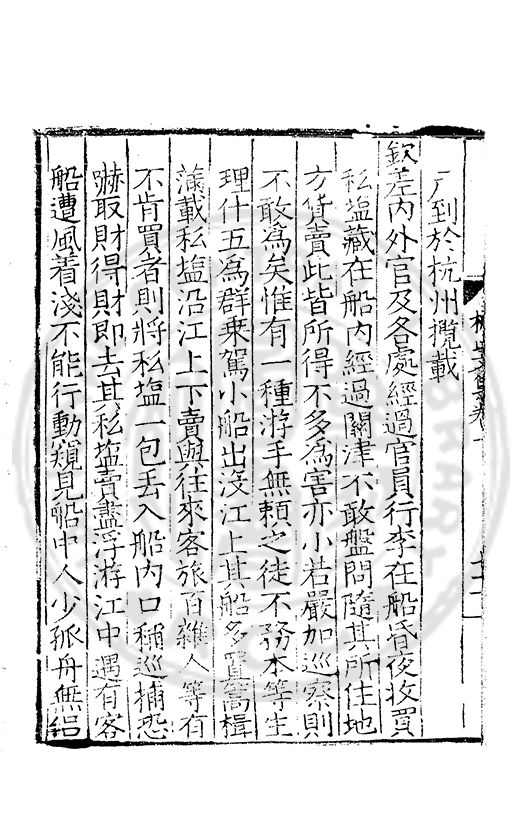 户到於杭州攬載
欽差内外官及各處經過官員行李在船昏夜收買
私塩藏在船内經過關津不敢盤問隨其所住地
方貨賣此皆所得不多為害亦小若嚴加巡察則
不敢為矣惟有一種游手無頼之徒不務本等生
理什五為群乗駕小船出没江上其船多置篙楫
滿載私塩沿江上下賣與往來客旅百雜人等有
不肯買者則將私塩一包丢入船内口稱巡捕恐
嚇取財得財即去其私塩賣盡浮游江中遇有客
船遭風着淺不能行動窺見船中人少孤舟無侣